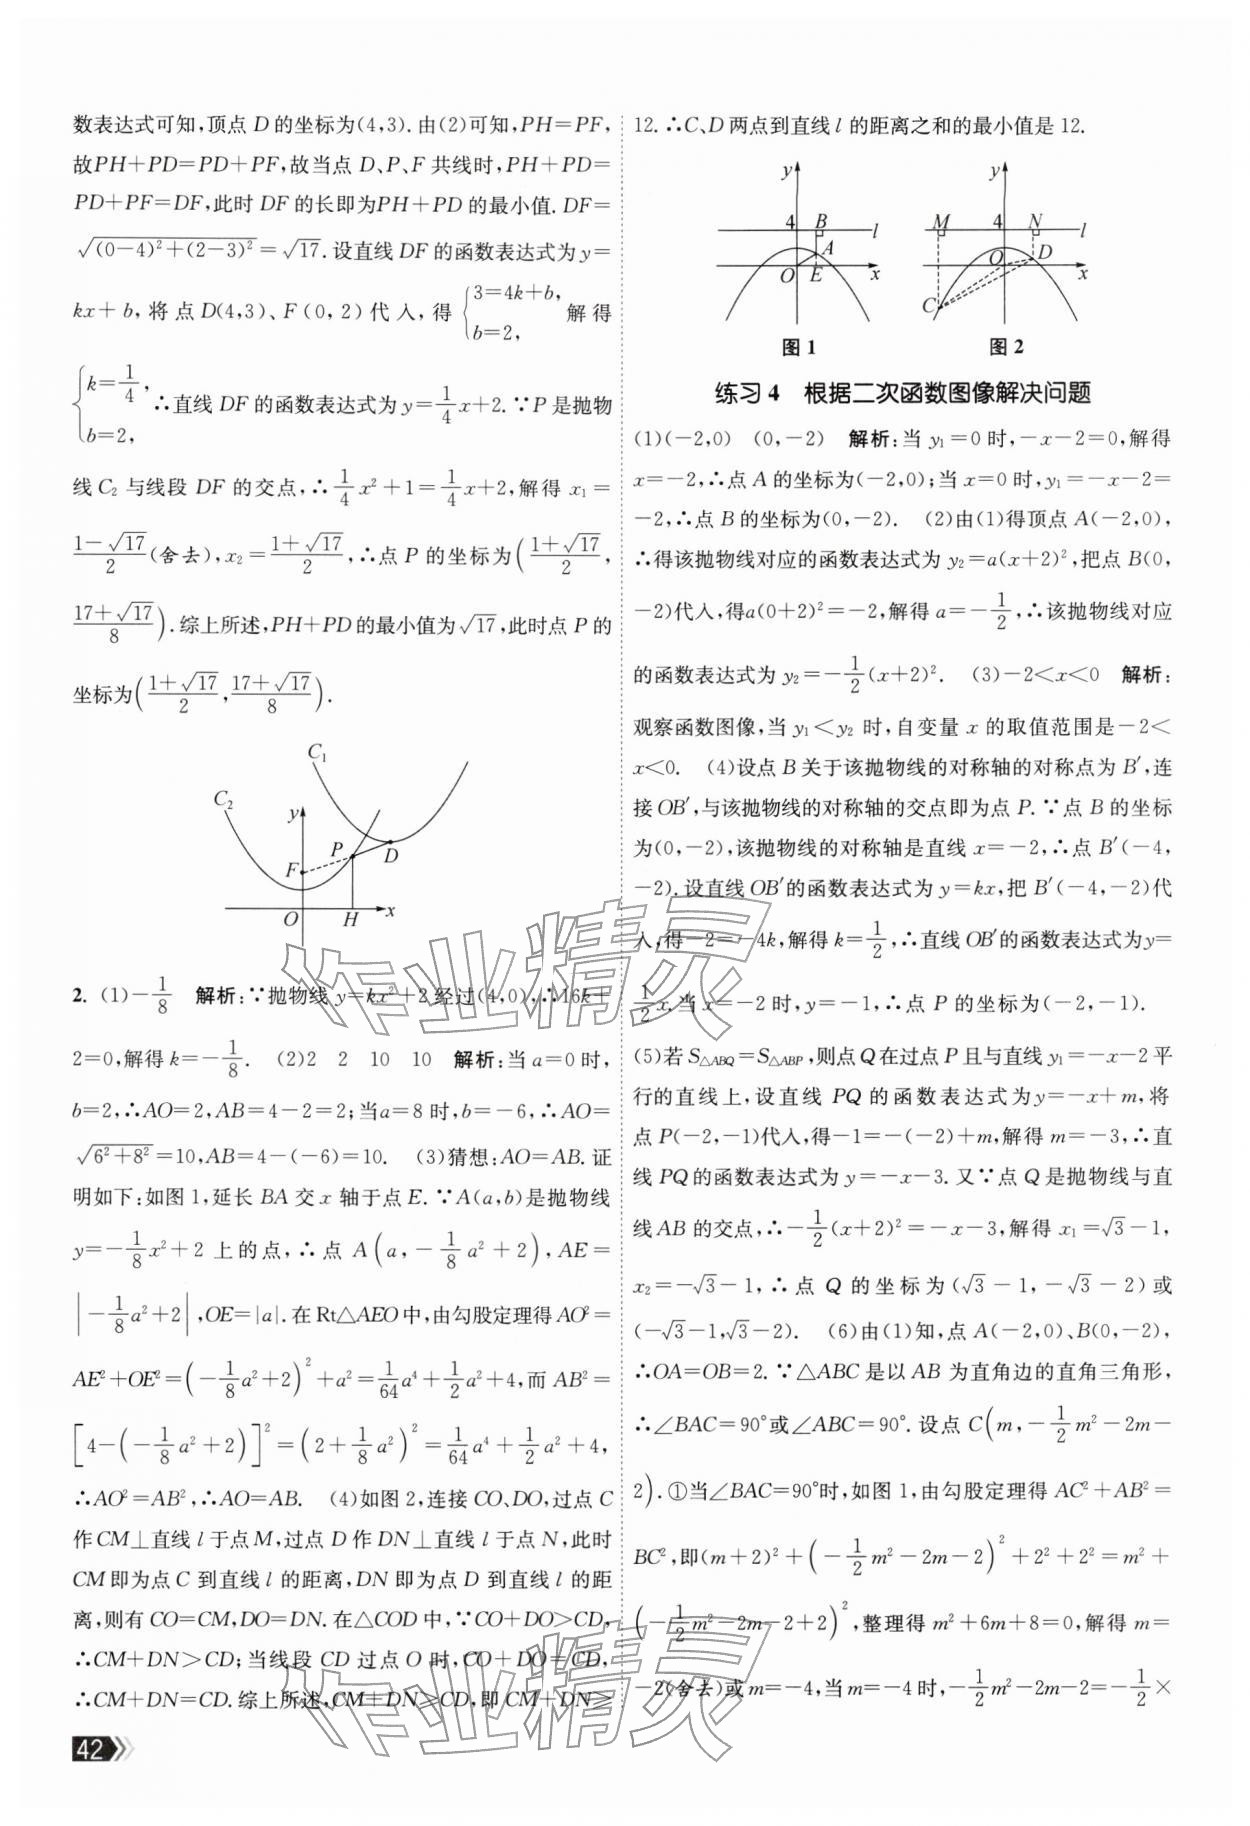 数表达式可知,顶点 D 的坐标为(4,3). 由(2)可知,PH=PF,
故PH+PD=PD+PF,故当点 D、P、F 共线时,PH+PD=
PD+PF=DF,此时 DF 的长即为PH+PD 的最小值. DF=
√((0-4)²+(2-3)²)=√17. 设直线 DF 的函数表达式为 y=
kx+b, 将点 D(4,3)、F(0,2)代入, 得 {3=4k+b, b=2, 解得
{k=1/4, b=2, ∴直线 DF 的函数表达式为 y=1/4x+2. ∵P 是抛物
线 C₂ 与线段 DF 的交点,∴1/4x²+1=1/4x+2,解得 x₁=
(1-√17)/2(舍去),x₂=(1+√17)/2,∴点 P 的坐标为((1+√17)/2,
(17+√17)/8). 综上所述,PH+PD的最小值为√17,此时点 P 的
坐标为((1+√17)/2,(17+√17)/8).
C₁
C₂
y
P
D
F
O
H
x
2. (1)-1/8 解析:∵抛物线 y=kx²+2经过(4,0),∴16k+
2=0,解得 k=-1/8. (2)2 2 10 10 解析:当 a=0 时,
b=2,∴AO=2,AB=4-2=2;当a=8 时,b=-6,∴AO=
√(6²+8²)=10,AB=4-(-6)=10. (3)猜想:AO=AB. 证
明如下:如图 1,延长 BA 交 x 轴于点 E. ∵A(a,b)是抛物线
y=-1/8x²+2 上的点,∴点 A(a,-1/8a²+2),AE=
|-1/8a²+2|,OE=|a|. 在 Rt△AEO 中,由勾股定理得 AO²=
AE²+OE²=(-1/8a²+2)²+a²=1/64a⁴+1/2a²+4,而 AB²=
[4-(-1/8a²+2)]²=(2+1/8a²)²=1/64a⁴+1/2a²+4,
∴AO²=AB²,∴AO=AB. (4)如图 2,连接 CO、DO,过点 C
作 CM⊥直线 l 于点 M,过点 D 作 DN⊥直线 l 于点 N,此时
CM 即为点 C 到直线 l 的距离,DN 即为点 D 到直线 l 的距
离,则有 CO=CM,DO=DN. 在△COD 中,∵CO+DO>CD,
∴CM+DN>CD;当线段 CD 过点 O 时,CO+DO=CD,
∴CM+DN=CD. 综上所述,CM+DN≥CD,即 CM+DN≥
42
12. ∴C、D 两点到直线 l 的距离之和的最小值是 12.
y
4
B
l
A
O
E
x
图 1
y
M
4
N
l
O
D
x
C
图 2
练习 4 根据二次函数图像解决问题
(1)(-2,0) (0,-2) 解析:当 y₁=0 时,-x-2=0,解得
x=-2,∴点 A 的坐标为(-2,0);当 x=0 时,y₁=-x-2=
-2,∴点 B 的坐标为(0,-2). (2)由(1)得顶点 A(-2,0),
∴得该抛物线对应的函数表达式为 y₂=a(x+2)²,把点 B(0,
-2)代入,得a(0+2)²=-2,解得 a=-1/2,∴该抛物线对应
的函数表达式为 y₂=-1/2(x+2)². (3)-2<x<0 解析:
观察函数图像,当 y₁<y₂ 时,自变量 x 的取值范围是-2<
x<0. (4)设点 B 关于该抛物线的对称轴的对称点为 B′,连
接 OB′,与该抛物线的对称轴的交点即为点 P. ∵点 B 的坐标
为(0,-2),该抛物线的对称轴是直线 x=-2,∴点 B′(-4,
-2). 设直线 OB′的函数表达式为 y=kx,把 B′(-4,-2)代
入,得-2=-4k,解得 k=1/2,∴直线 OB′的函数表达式为y=
1/2x. 当 x=-2 时,y=-1,∴点 P 的坐标为(-2,-1).
(5)若 S△ABQ=S△ABP,则点 Q 在过点 P 且与直线 y₁=-x-2 平
行的直线上,设直线 PQ 的函数表达式为y=-x+m,将
点 P(-2,-1)代入,得-1=-(-2)+m,解得 m=-3,∴直
线 PQ 的函数表达式为 y=-x-3. 又∵点 Q 是抛物线与直
线 AB 的交点,∴-1/2(x+2)²=-x-3,解得 x₁=√3-1,
x₂=-√3-1,∴点 Q 的坐标为(√3-1,-√3-2)或
(-√3-1,√3-2). (6)由(1)知,点 A(-2,0)、B(0,-2),
∴OA=OB=2. ∵△ABC 是以 AB 为直角边的直角三角形,
∴∠BAC=90°或∠ABC=90°. 设点 C(m,-1/2m²-2m-
2). ①当∠BAC=90°时,如图 1,由勾股定理得 AC²+AB²=
BC²,即(m+2)²+(-1/2m²-2m-2)²+2²+2²=m²+
(-1/2m²-2m-2+2)²,整理得 m²+6m+8=0,解得 m=
-2(舍去)或 m=-4,当 m=-4 时,-1/2m²-2m-2=-1/2×
作业精灵
作业精灵